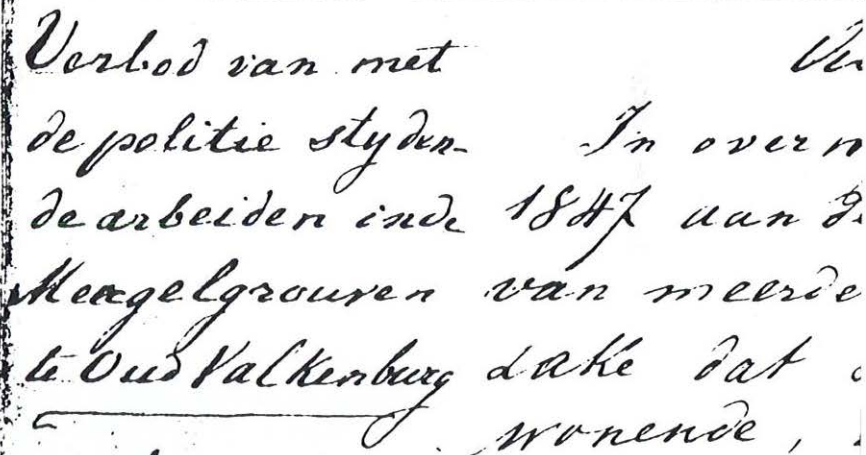 Verbod van met
de politie styden-
de arbeiden in de
Mergelgrouven
te Oud Valkenburg
In over
1847 aan
van meerde
zake dat
wonende,